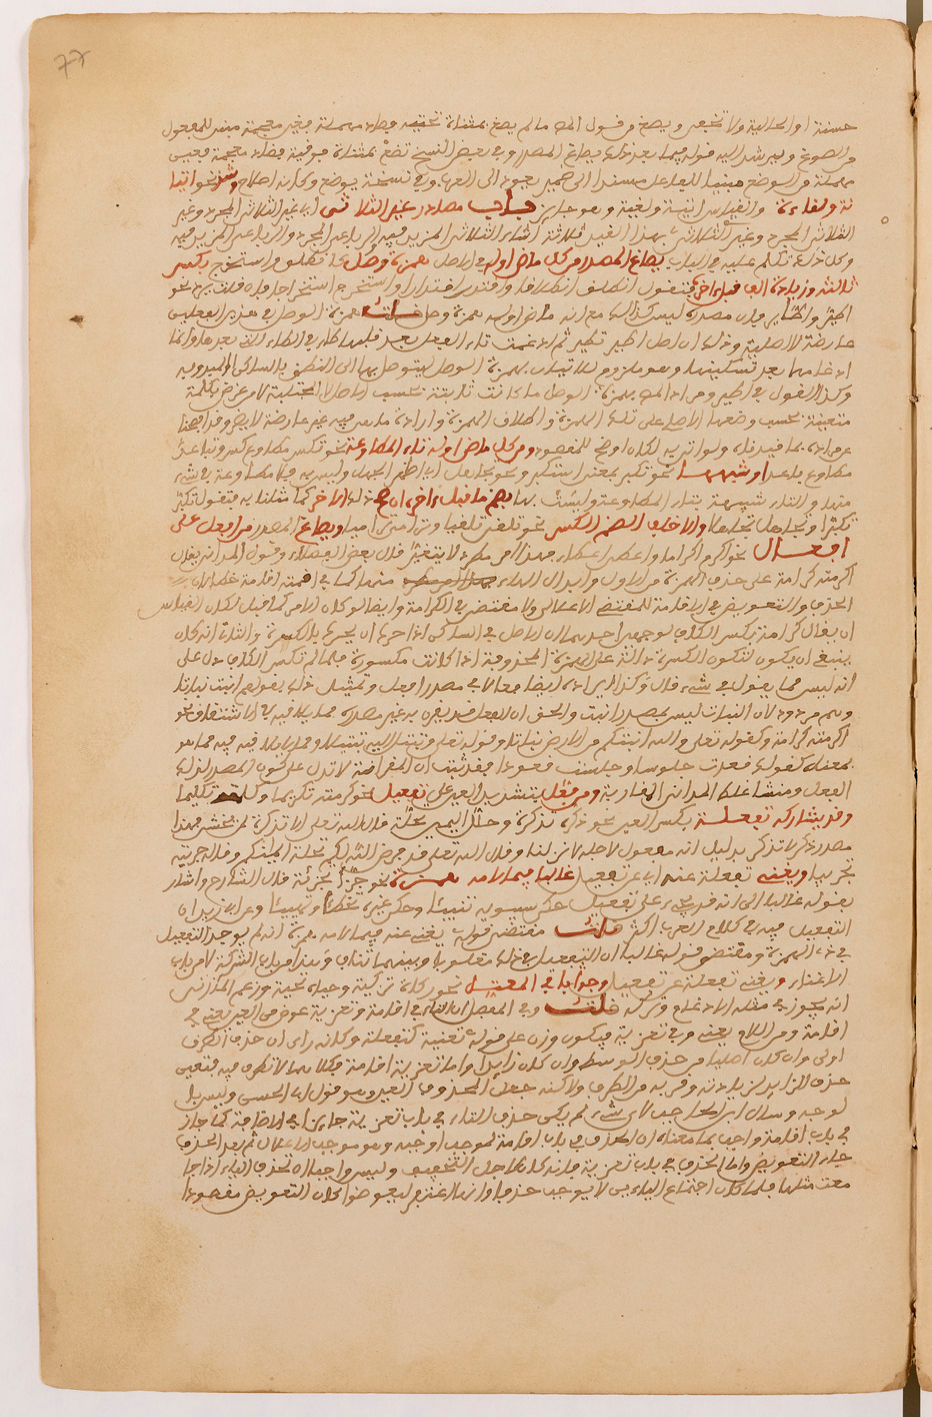 حسنة او الحالية ولا تجعر ويصغ من قول المص ما لم يصغ بمثناة تحتية وصاد مهملة وغين معجمة مبني للمفعول
والصوغ ويرشد اليه قوله فيما بعد ذلك يصاغ المصدر وفي بعض النسخ تضع بمثناة فوقية وضاد معجمة وعين
مهملة من الوضع مبنيا للفاعل مسندا الى ضمير يعود الى العرب وفي نسخة يوضع وكانه اصلاح وشذ نحو اتيا
نة ولقاءة والقياس اتية ولقية وهو جايز باب مصادر غير الثلاثي اي غير الثلاثي المجرد وغير
الثلاثي المجرد وغير الثلاثي بهذا القيد ثلاثة اشياء الثلاثي المزيد فيه الرباعي المجرد والرباعي المزيد فيه
وكل ذلك تكلم عليه في الباب يصاغ المصدر من كل ماض اوله في الاصل همزة وصل كانطلق واستخرج بكسر
ثالثه وزيادة الف قبل اخره فتقول انطلق انطلاقا واقتدر اقتدارا واستخرج استخراجا فان قلت يرد نحو
اطير واطاير فان مصدره ليس كذلك مع انه ماض اوله همزة وصل قلت همزة الوصل في هذين الفعلين
عارضة لا اصلية وذلك ان اصل اطير تطير ثم ادغمت تاء الفعل بعد قلبها طاء في الطاء التي بعدها وانما
ادغامها بعد تسكينها وهو ملزوم للاتيان بهمزة الوصل ليتوصل بها الى النطق بالساكن المبدوء به
وكذا القول في اطير ومراد المص بهمزة الوصل ما كانت ثابتة بحسب الاصل لا المجتلبة لامر عرض لكلمة
متعينة بحسب وضعها الاصلي على تلك الهمزة واطلاق الهمزة وارادة ما هي فيه غير عارضة لا يضر وقد افصح
عن مراده بما قيدناه ولو اتى به لكان اوضح للمقصود ومن كل ماض اوله تاء المطاوعة نحو تكسر مطاوع كسر وتباعد
مطاوع باعد او شبهها نحو تكبر بمعنى استكبر ونحو تجاهل اي اظهر الجهل وليس به فلا مطاوعة في شيء
منهما والتاء شبيهة بتاء المطاوعة وليست بها بضم ما قبل اخره ان صح ذلك الاخر كما مثلنا به فتقول تكبر
تكبرا وتجاهل تجاهلا والا خلف الضم الكسر نحو تلقى تلقيا وترامى تراميا ويصاغ المصدر من افعل على
افعال نحو اكرم اكراما واعطى اعطاء وهذا امر مطرد لا يتغير قال بعض الفضلاء وقول المدانه يقال
اكرمته كرامة على حذف الهمزة من الاول وابدال الهاء منها كما في اقمته اقامة غلط لان
الحذف والتعويض في الاقامة للمقتضي الاعلالي ولا مقتضي في الكرامة وايضا لو كان الامر كما قيل لكان القياس
ان يقال كرامة بكسر الكاف لوجهين احدهما ان الاصل في الساكن اذا حرك ان يحرك بالكسرة والثاني انه كان
ينبغي ان يكون لتكون الكسرة دالة على الهمزة المحذوفة اذا كانت مكسورة فلما لم تكسر الكاف دل على
انه ليس مما يقول في شيء قال وكذا ايراده ايضا فعالا في مصدر افعل وتمثيل ذلك بقولهم انبت نباتا
وهم مردود لان النبات ليس بمصدر انبت والحق ان الفعل قد يقرن به غير مصدره مما يلاقيه في الاشتقاق نحو
اكرمته كرامة وكقوله تعالى والله انبتكم من الارض نباتا وقوله تعالى وتبتل اليه تبتيلا وما يلاقيه فيه مما هو
بمعناه كقولك قعدت جلوسا وجلست قعودا فقد ثبت ان المقارنة لا تدل على كون المصدر لذلك
الفعل ومنشا غلط المدانه المقارنة ومن فعل بتشديد العين على تفعيل نحو كرمته تكريما وكلمه تكليما
وقد يشاركه تفعلة بكسر العين نحو ذكره تذكرة وحلل اليمين تحلة قال الله تعالى الا تذكرة لمن يخشى فهذا
مصدر ذكر لا تذكر بدليل انه مفعول لاجله لانزلنا وقال الله تعالى قد فرض الله لكم تحلة ايمانكم وقاله جربه
تجربيا ويغني تفعلة عنه اي عن تفعيل غالبا فيما لامه همزة نحو جزأ تجزئة قال الشارح واشار
بقوله غالبا الى انه قد يجيء على تفعيل حكى سيبويه تنبيئا وحكى غيره تخطيئا وتهنيئا وعن ابي زيد ان
التفعيل فيه في كلام العرب اكثر قلت مقتضى قوله يغني عنه فيما لامه همزة انه لم يوجد التفعيل
في ذي الهمزة ومقتضى قوله غالبا ان التفعيل في ذلك مغلوب وبينهما تناف وهذا من باب الشركة لا من باب
الاغناء ويغني تفعلة عن تفعيل وجوبا في المعتل نحو زكاه تزكية وحياه تحية وزعم المكناسي
انه يجوز في مثله الادغام وتركه قلت وفي المفصل ان التاء في اقامة وتعزية عوض من العين تعني في
اقامة ومن اللام يعني وفي تعزية فيكون وزن على قوله تعنية كتفعلة وكانه راى ان حذف الطرف
اولى وان كان اصليا من حذف الوسط وان كان زايدا واما تعزية اقامة فكلاهما لا تطرف فيه فتعين
حذف الزايد لزيادته وقربه من الطرف ولاكنه جعل المحذوف العين وهو قول ابي الحسن وليس بل
لوحد وسال ابن الحاجب لاي شيء لم يكن حذف التاء في باب تعزية جايزا في الاضافة كما جاز
في باب اقامة واجاب بما معناه ان الحذف في باب اقامة لموجب اوجبه وهو موجب الاعلال ثم بعد الحذف
جاء التعويض واما الحذف في باب تعزية فانه كان لاجل التخفيف وليس واجبا ان تحذف الياء اذا جا
معت مثلها فلما كان اجتماع الياءين لا يوجب حذفا وانما الغرض ليعوضوا كان التعويض مقصودا